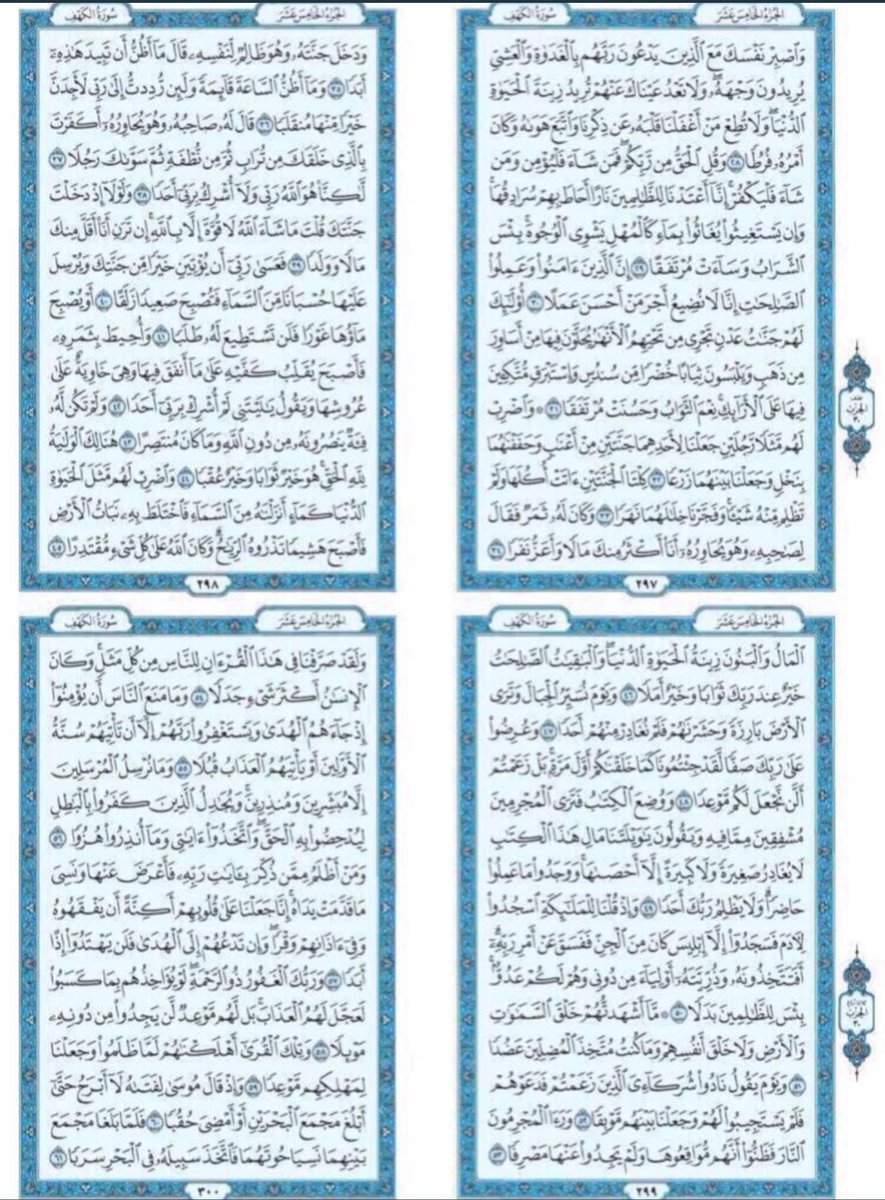 الجُزْءُ الخَامِسَ عَشَرَ
سُورَةُ الكَهْفِ
وَٱصْبِرْ نَفْسَكَ مَعَ ٱلَّذِينَ يَدْعُونَ رَبَّهُم بِٱلْغَدَوٰةِ وَٱلْعَشِيِّ
يُرِيدُونَ وَجْهَهُۥ وَلَا تَعْدُ عَيْنَاكَ عَنْهُمْ تُرِيدُ زِينَةَ ٱلْحَيَوٰةِ
ٱلدُّنْيَا وَلَا تُطِعْ مَنْ أَغْفَلْنَا قَلْبَهُۥ عَن ذِكْرِنَا وَٱتَّبَعَ هَوَىٰهُ وَكَانَ
أَمْرُهُۥ فُرُطًا ٢٨ وَقُلِ ٱلْحَقُّ مِن رَّبِّكُمْ فَمَن شَآءَ فَلْيُؤْمِن وَمَن
شَآءَ فَلْيَكْفُرْ إِنَّآ أَعْتَدْنَا لِلظَّٰلِمِينَ نَارًا أَحَاطَ بِهِمْ سُرَادِقُهَا
وَإِن يَسْتَغِيثُوا۟ يُغَاثُوا۟ بِمَآءٍ كَٱلْمُهْلِ يَشْوِى ٱلْوُجُوهَ بِئْسَ
ٱلشَّرَابُ وَسَآءَتْ مُرْتَفَقًا ٢٩ إِنَّ ٱلَّذِينَ ءَامَنُوا۟ وَعَمِلُوا۟
ٱلصَّٰلِحَٰتِ إِنَّا لَا نُضِيعُ أَجْرَ مَنْ أَحْسَنَ عَمَلًا ٣٠ أُو۟لَٰٓئِكَ
لَهُمْ جَنَّٰتُ عَدْنٍ تَجْرِى مِن تَحْتِهِمُ ٱلْأَنْهَٰرُ يُحَلَّوْنَ فِيهَا مِنْ أَسَاوِرَ
مِن ذَهَبٍ وَيَلْبَسُونَ ثِيَابًا خُضْرًا مِّن سُندُسٍ وَإِسْتَبْرَقٍ مُّتَّكِـِٔينَ
فِيهَا عَلَى ٱلْأَرَآئِكِ نِعْمَ ٱلثَّوَابُ وَحَسُنَتْ مُرْتَفَقًا ٣١ ۞ وَٱضْرِبْ
لَهُم مَّثَلًا رَّجُلَيْنِ جَعَلْنَا لِأَحَدِهِمَا جَنَّتَيْنِ مِنْ أَعْنَٰبٍ وَحَفَفْنَٰهُمَا
بِنَخْلٍ وَجَعَلْنَا بَيْنَهُمَا زَرْعًا ٣٢ كِلْتَا ٱلْجَنَّتَيْنِ ءَاتَتْ أُكُلَهَا وَلَمْ
تَظْلِم مِّنْهُ شَيْـًٔا وَفَجَّرْنَا خِلَٰلَهُمَا نَهَرًا ٣٣ وَكَانَ لَهُۥ ثَمَرٌ فَقَالَ
لِصَٰحِبِهِۦ وَهُوَ يُحَاوِرُهُۥٓ أَنَا۠ أَكْثَرُ مِنكَ مَالًا وَأَعَزُّ نَفَرًا ٣٤
٢٩٧
الحزب
٣٠
الجُزْءُ الخَامِسَ عَشَرَ
سُورَةُ الكَهْفِ
وَدَخَلَ جَنَّتَهُۥ وَهُوَ ظَالِمٌ لِّنَفْسِهِۦ قَالَ مَآ أَظُنُّ أَن تَبِيدَ هَٰذِهِۦٓ
أَبَدًا ٣٥ وَمَآ أَظُنُّ ٱلسَّاعَةَ قَآئِمَةً وَلَئِن رُّدِدتُّ إِلَىٰ رَبِّى لَأَجِدَنَّ
خَيْرًا مِّنْهَا مُنقَلَبًا ٣٦ قَالَ لَهُۥ صَاحِبُهُۥ وَهُوَ يُحَاوِرُهُۥٓ أَكَفَرْتَ
بِٱلَّذِى خَلَقَكَ مِن تُرَابٍ ثُمَّ مِن نُّطْفَةٍ ثُمَّ سَوَّىٰكَ رَجُلًا ٣٧
لَّٰكِنَّا۠ هُوَ ٱللَّهُ رَبِّى وَلَآ أُشْرِكُ بِرَبِّىٓ أَحَدًا ٣٨ وَلَوْلَآ إِذْ دَخَلْتَ
جَنَّتَكَ قُلْتَ مَا شَآءَ ٱللَّهُ لَا قُوَّةَ إِلَّا بِٱللَّهِ إِن تَرَنِ أَنَا۠ أَقَلَّ مِنكَ
مَالًا وَوَلَدًا ٣٩ فَعَسَىٰ رَبِّىٓ أَن يُؤْتِيَنِ خَيْرًا مِّن جَنَّتِكَ وَيُرْسِلَ
عَلَيْهَا حُسْبَانًا مِّنَ ٱلسَّمَآءِ فَتُصْبِحَ صَعِيدًا زَلَقًا ٤٠ أَوْ يُصْبِحَ
مَآؤُهَا غَوْرًا فَلَن تَسْتَطِيعَ لَهُۥ طَلَبًا ٤١ وَأُحِيطَ بِثَمَرِهِۦ
فَأَصْبَحَ يُقَلِّبُ كَفَّيْهِ عَلَىٰ مَآ أَنفَقَ فِيهَا وَهِىَ خَاوِيَةٌ عَلَىٰ
عُرُوشِهَا وَيَقُولُ يَٰلَيْتَنِى لَمْ أُشْرِكْ بِرَبِّىٓ أَحَدًا ٤٢ وَلَمْ تَكُن لَّهُۥ
فِئَةٌ يَنصُرُونَهُۥ مِن دُونِ ٱللَّهِ وَمَا كَانَ مُنتَصِرًا ٤٣ هُنَالِكَ ٱلْوَلَٰيَةُ
لِلَّهِ ٱلْحَقِّ هُوَ خَيْرٌ ثَوَابًا وَخَيْرٌ عُقْبًا ٤٤ وَٱضْرِبْ لَهُم مَّثَلَ ٱلْحَيَوٰةِ
ٱلدُّنْيَا كَمَآءٍ أَنزَلْنَٰهُ مِنَ ٱلسَّمَآءِ فَٱخْتَلَطَ بِهِۦ نَبَاتُ ٱلْأَرْضِ
فَأَصْبَحَ هَشِيمًا تَذْرُوهُ ٱلرِّيَٰحُ وَكَانَ ٱللَّهُ عَلَىٰ كُلِّ شَىْءٍ مُّقْتَدِرًا ٤٥
٢٩٨
الجُزْءُ الخَامِسَ عَشَرَ
سُورَةُ الكَهْفِ
ٱلْمَالُ وَٱلْبَنُونَ زِينَةُ ٱلْحَيَوٰةِ ٱلدُّنْيَا وَٱلْبَٰقِيَٰتُ ٱلصَّٰلِحَٰتُ
خَيْرٌ عِندَ رَبِّكَ ثَوَابًا وَخَيْرٌ أَمَلًا ٤٦ وَيَوْمَ نُسَيِّرُ ٱلْجِبَالَ وَتَرَى
ٱلْأَرْضَ بَارِزَةً وَحَشَرْنَٰهُمْ فَلَمْ نُغَادِرْ مِنْهُمْ أَحَدًا ٤٧ وَعُرِضُوا۟
عَلَىٰ رَبِّكَ صَفًّا لَّقَدْ جِئْتُمُونَا كَمَا خَلَقْنَٰكُمْ أَوَّلَ مَرَّةٍۭ بَلْ زَعَمْتُمْ
أَلَّن نَّجْعَلَ لَكُم مَّوْعِدًا ٤٨ وَوُضِعَ ٱلْكِتَٰبُ فَتَرَى ٱلْمُجْرِمِينَ
مُشْفِقِينَ مِمَّا فِيهِ وَيَقُولُونَ يَٰوَيْلَتَنَا مَالِ هَٰذَا ٱلْكِتَٰبِ
لَا يُغَادِرُ صَغِيرَةً وَلَا كَبِيرَةً إِلَّآ أَحْصَىٰهَا وَوَجَدُوا۟ مَا عَمِلُوا۟
حَاضِرًا وَلَا يَظْلِمُ رَبُّكَ أَحَدًا ٤٩ وَإِذْ قُلْنَا لِلْمَلَٰٓئِكَةِ ٱسْجُدُوا۟
لِـَٔادَمَ فَسَجَدُوٓا۟ إِلَّآ إِبْلِيسَ كَانَ مِنَ ٱلْجِنِّ فَفَسَقَ عَنْ أَمْرِ رَبِّهِۦٓ
أَفَتَتَّخِذُونَهُۥ وَذُرِّيَّتَهُۥٓ أَوْلِيَآءَ مِن دُونِى وَهُمْ لَكُمْ عَدُوٌّۢ
بِئْسَ لِلظَّٰلِمِينَ بَدَلًا ٥٠ ۞ مَّآ أَشْهَدتُّهُمْ خَلْقَ ٱلسَّمَٰوَٰتِ
وَٱلْأَرْضِ وَلَا خَلْقَ أَنفُسِهِمْ وَمَا كُنتُ مُتَّخِذَ ٱلْمُضِلِّينَ عَضُدًا
٥١ وَيَوْمَ يَقُولُ نَادُوا۟ شُرَكَآءِىَ ٱلَّذِينَ زَعَمْتُمْ فَدَعَوْهُمْ
فَلَمْ يَسْتَجِيبُوا۟ لَهُمْ وَجَعَلْنَا بَيْنَهُم مَّوْبِقًا ٥٢ وَرَءَا ٱلْمُجْرِمُونَ
ٱلنَّارَ فَظَنُّوٓا۟ أَنَّهُم مُّوَاقِعُوهَا وَلَمْ يَجِدُوا۟ عَنْهَا مَصْرِفًا ٥٣
٢٩٩
الحزب
٣٠
الجُزْءُ الخَامِسَ عَشَرَ
سُورَةُ الكَهْفِ
وَلَقَدْ صَرَّفْنَا فِى هَٰذَا ٱلْقُرْءَانِ لِلنَّاسِ مِن كُلِّ مَثَلٍ وَكَانَ
ٱلْإِنسَٰنُ أَكْثَرَ شَىْءٍ جَدَلًا ٥٤ وَمَا مَنَعَ ٱلنَّاسَ أَن يُؤْمِنُوٓا۟
إِذْ جَآءَهُمُ ٱلْهُدَىٰ وَيَسْتَغْفِرُوا۟ رَبَّهُمْ إِلَّآ أَن تَأْتِيَهُمْ سُنَّةُ
ٱلْأَوَّلِينَ أَوْ يَأْتِيَهُمُ ٱلْعَذَابُ قُبُلًا ٥٥ وَمَا نُرْسِلُ ٱلْمُرْسَلِينَ
إِلَّا مُبَشِّرِينَ وَمُنذِرِينَ وَيُجَٰدِلُ ٱلَّذِينَ كَفَرُوا۟ بِٱلْبَٰطِلِ
لِيُدْحِضُوا۟ بِهِ ٱلْحَقَّ وَٱتَّخَذُوٓا۟ ءَايَٰتِى وَمَآ أُنذِرُوا۟ هُزُوًا ٥٦
وَمَنْ أَظْلَمُ مِمَّن ذُكِّرَ بِـَٔايَٰتِ رَبِّهِۦ فَأَعْرَضَ عَنْهَا وَنَسِىَ
مَا قَدَّمَتْ يَدَاهُ إِنَّا جَعَلْنَا عَلَىٰ قُلُوبِهِمْ أَكِنَّةً أَن يَفْقَهُوهُ
وَفِىٓ ءَاذَانِهِمْ وَقْرًا وَإِن تَدْعُهُمْ إِلَى ٱلْهُدَىٰ فَلَن يَهْتَدُوٓا۟ إِذًا
أَبَدًا ٥٧ وَرَبُّكَ ٱلْغَفُورُ ذُو ٱلرَّحْمَةِ لَوْ يُؤَاخِذُهُم بِمَا كَسَبُوا۟
لَعَجَّلَ لَهُمُ ٱلْعَذَابَ بَل لَّهُم مَّوْعِدٌ لَّن يَجِدُوا۟ مِن دُونِهِۦ
مَوْئِلًا ٥٨ وَتِلْكَ ٱلْقُرَىٰٓ أَهْلَكْنَٰهُمْ لَمَّا ظَلَمُوا۟ وَجَعَلْنَا
لِمَهْلِكِهِم مَّوْعِدًا ٥٩ وَإِذْ قَالَ مُوسَىٰ لِفَتَىٰهُ لَآ أَبْرَحُ حَتَّىٰٓ
أَبْلُغَ مَجْمَعَ ٱلْبَحْرَيْنِ أَوْ أَمْضِىَ حُقُبًا ٦٠ فَلَمَّا بَلَغَا مَجْمَعَ
بَيْنِهِمَا نَسِيَا حُوتَهُمَا فَٱتَّخَذَ سَبِيلَهُۥ فِى ٱلْبَحْرِ سَرَبًا ٦١
٣٠٠